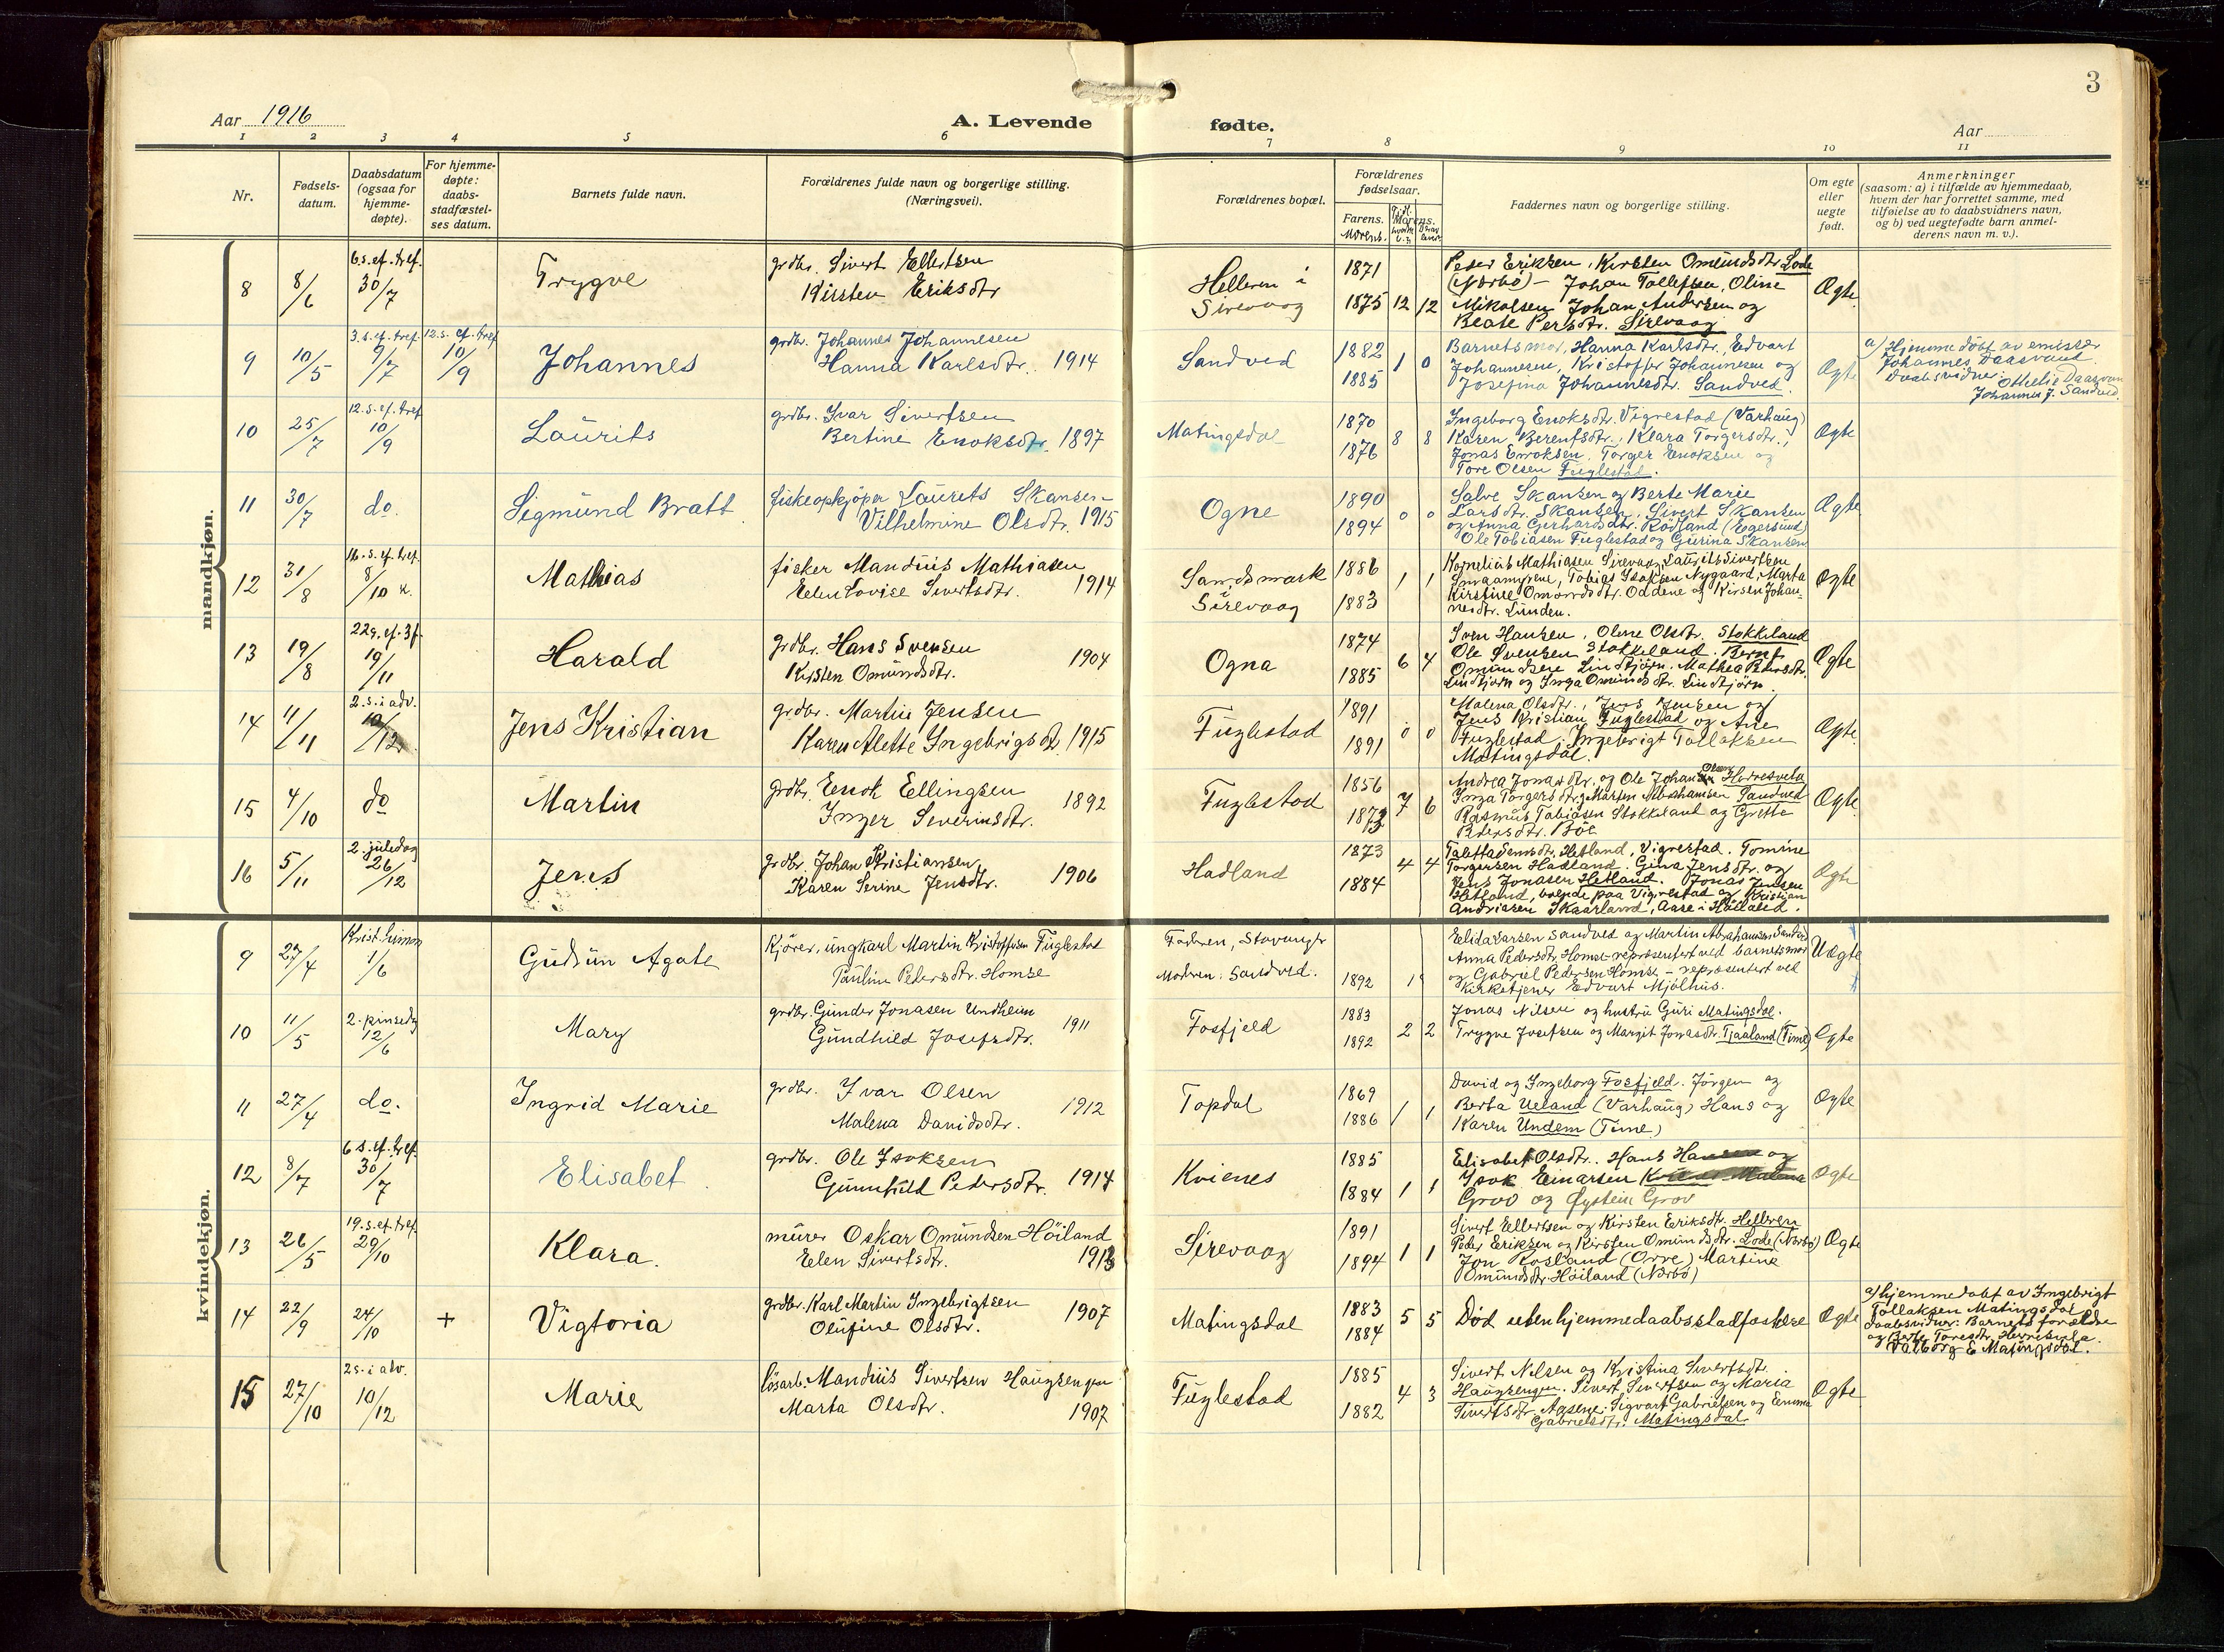 3
Aar 1916
A. Levende fødte.
Aar
1 2 3 4 5 6 7 8 9 10 11
Nr.
Fødsels-
datum.
Daabsdatum
(ogsaa for
hjemme-
døpte).
For hjemme-
døpte:
daabs-
stadfæstel-
ses datum.
Barnets fulde navn.
Forældrenes fulde navn og borgerlige stilling.
(Næringsvei).
Forældrenes bopæl.
Forældrenes
fødselsaar.
Farens.
Morens.
Morens.
Faddernes navn og borgerlige stilling.
Om egte
eller
uegte
født.
Anmerkninger
(saasom: a) i tilfælde av hjemmedaab,
hvem der har forrettet samme, med
tilføielse av to daabsvidners navn,
og b) ved uegtefødte barn anmel-
derens navn m. v.).
mandkjøn.
8
8/6
6.s.ef.tref.
30/7
Trygve
grdbr. Sivert Ellertsen
Kirsten Eriksdtr
Helleren i
Sirevaag
1871
1875 12 12
Peder Eriksen, Kirsten Omundsdtr. Lode
(Nærbø) - Johan Tollefsen, Oline
Mikalsen, Johan Andersen og
Beate Persdtr. Sirevaag
Ægte
9
10/5
3.s.ef.tref.
9/7
12.s.ef.tref
10/9
Johannes
grdbr. Johannes Johannesen
Hanna Karlsdtr. 1914
Sandved
1882
1885 1 0
Barnets mor, Hanna Karlsdtr., Edvart
Johannesen, Kristoffer Johannesen og
Josefina Johannesdtr. Sandved.
Ægte
a) Hjemmedøbt av emissær
Johannes Daasvand
Daabsvidner:
Othelie Daasvan
Johannes J. Sandved.
10
25/7
12.s.ef.tref
10/9
Laurits
grdbr. Ivar Sivertsen
Bertine Enoksdtr. 1897
Matingsdal
1870
1876 8 8
Ingeborg Enoksdtr. Vigrestad (Varhaug)
Karen Berentsdtr., Klara Torgersdtr.,
Jonas Enoksen, Torger Enoksen og
Tore Olsen Fuglestad.
Ægte
11
30/7
do.
Sigmund Bratt
fiskeopkjøper Laurits Skansen
Vilhelmine Olsdtr. 1915
Ogne
1890
1894 0 0
Salve Skansen og Berte Marie
Larsdtr. Skansen, Sivert Skansen
og Anna Gerhardsdtr. Rødland (Egersund)
Ole Tobiasen Fuglestad og Gurina Skansen
Ægte
12
31/8
16.s.ef.tref.
8/10 k.
Mathias
fisker Mandius Mathiasen
Eelen Lovise Sivertsdtr. 1914
Sandsmark
i
Sirevaag
1886
1883 1 1
Kornelius Mathiasen Sirevaag, Laurits Sivertsen
Smaamyrene, Tobias Isaksen Nygaard, Marta
Kirstine Omundsdtr. Oddene og Kirsen Johan-
nesdtr. Lunden.
Ægte
13
19/8
22s.ef.3f.
19/11
Harald
grdbr. Hans Svensen
Kirsten Omundsdtr. 1904
Ogna
1874
1885 6 4
Sven Hansen, Oline Olsdtr. Stokkeland
Ole Svensen Stokkeland. Bernt
Omundsen Lindtjørn, Mathea Pedersdtr.
Lindtjørn og Inga Omundsdtr. Lindtjørn.
Ægte
14
11/11
2.s.i adv.
10/12
Jens Kristian
grdbr. Martin Jensen
Karen Alette Ingebrigsdt. 1915
Fuglestad
1891
1891 0 0
Malena Olsdtr., Jens Jensen og
Jens Kristian Fuglestad og Ane
Fuglestad. Ingebrigt Tollaksen
Matingsdal.
Ægte
15
4/10
do
Martin
grdbr. Enok Ellingsen
Inger Severinsdtr. 1892
Fuglestad
1856
1873 7 6
Andrea Jonasdtr. og Ole Johan Herresvela
Inga Torgersdtr. og Martin Abrahamsen Sandved
Rasmus Tobiasen Stokkeland og Grette
Pedersdtr. Bøe
Ægte
16
5/11
2. juledag
26/12
Jens
grdbr. Johan Kristiansen
Karen Serine Jensdtr. 1906
Hadland
1873
1884 4 4
Taletta Jensdtr. Hetland, Vigrestad. Tomine
Torgersen Hadland. Gina Jensdtr. og
Jens Jonasen Hetland. Jonas Jensen
Hetland, boende paa Vigrestad og Kristian
Andriasen Skaarland, Aase i Helleland.
Ægte
kvindekjøn.
9
27/4
Krist. himm
1/6
Gudrun Agate
Kjører, ungkarl Martin Kristoffersen Fuglestad
Pauline Pedersdtr. Homse
Faderen, Stavanger
Moderen: Sandved.
1892 1
Elida Larsen Sandved og Martin Abrahamsen Sandved
Anna Pedersdtr. Homse - repræsentert ved barnets mor
og Gabriel Pedersen Homse - repræsentert ved
Kirketjener Edvart Mjølhus.
Uægte
10
11/5
2. pinsedg
12/6
Mary
grdbr. Gunder Jonasen Undheim
Gundhild Josefsdtr. 1911
Fosfjeld
1883
1892 2 2
Jonas Nilsen og hustru Guri Matingsdal.
Trygve Josefsen og Margit Jonasdtr. Tjaaland (Time)
Ægte
11
27/4
do.
Ingrid Marie
grdbr. Ivar Olsen
Malena Davidsdtr. 1912
Topdal
1869
1886 1 1
David og Ingeborg Fosfjeld. Jørgen og
Berta Ueland (Varhaug) Hans og
Karen Undem (Time)
Ægte
12
8/7
6 s.ef.tref.
30/7
Elisabet
grdbr. Ole Isaksen
Gunnhild Pedersdtr. 1914
Kvienes
1885
1884 1 1
Elisabet Olsdtr. Hans Hansen og
Isak Einarsen
Grov og Øystein Grov
Ægte
13
26/5
19.s.ef.tref.
29/10
Klara.
murer Oskar Omundsen Høiland
Eelen Sivertsdtr. 1913
Sirevaag
1891
1894 1 1
Sivert Ellertsen og Kirsten Eriksdtr. Helleren
Peder Eriksen og Kirsten Omundsdtr. Lode (Nærbø)
Jon Rosland (Orre) Martine
Omundsdtr. Høiland (Nærbø)
Ægte
14
22/9
24/10
+
Vigtoria
grdbr. Karl Martin Ingebrigtsen
Olufine Olsdtr. 1907
Matingsdal
1883
1884 5 5
Død uten hjemmedaabsstadfæstelse
Ægte
a) hjemmedøbt av Ingebrigt
Tollaksen Matingsdal
Daabsvidner: Barnets forældre
og Berte Toresdtr. Herresvela.
Valborg E Matingsdal.
15
27/10
2s. i adv.
10/12
Marie
løsarb. Mandius Sivertsen Haugsengen
Marta Olsdtr. 1907
Fuglestad
1885
1882 4 3
Sivert Nilsen og Kristina Sivertsdtr.
Haugsengen. Sivert Sivertsen og Maria
Sivertsdtr. Aasene. Sigvart Gabrielsen og Emma
Gabrielsdtr. Matingsdal
Ægte